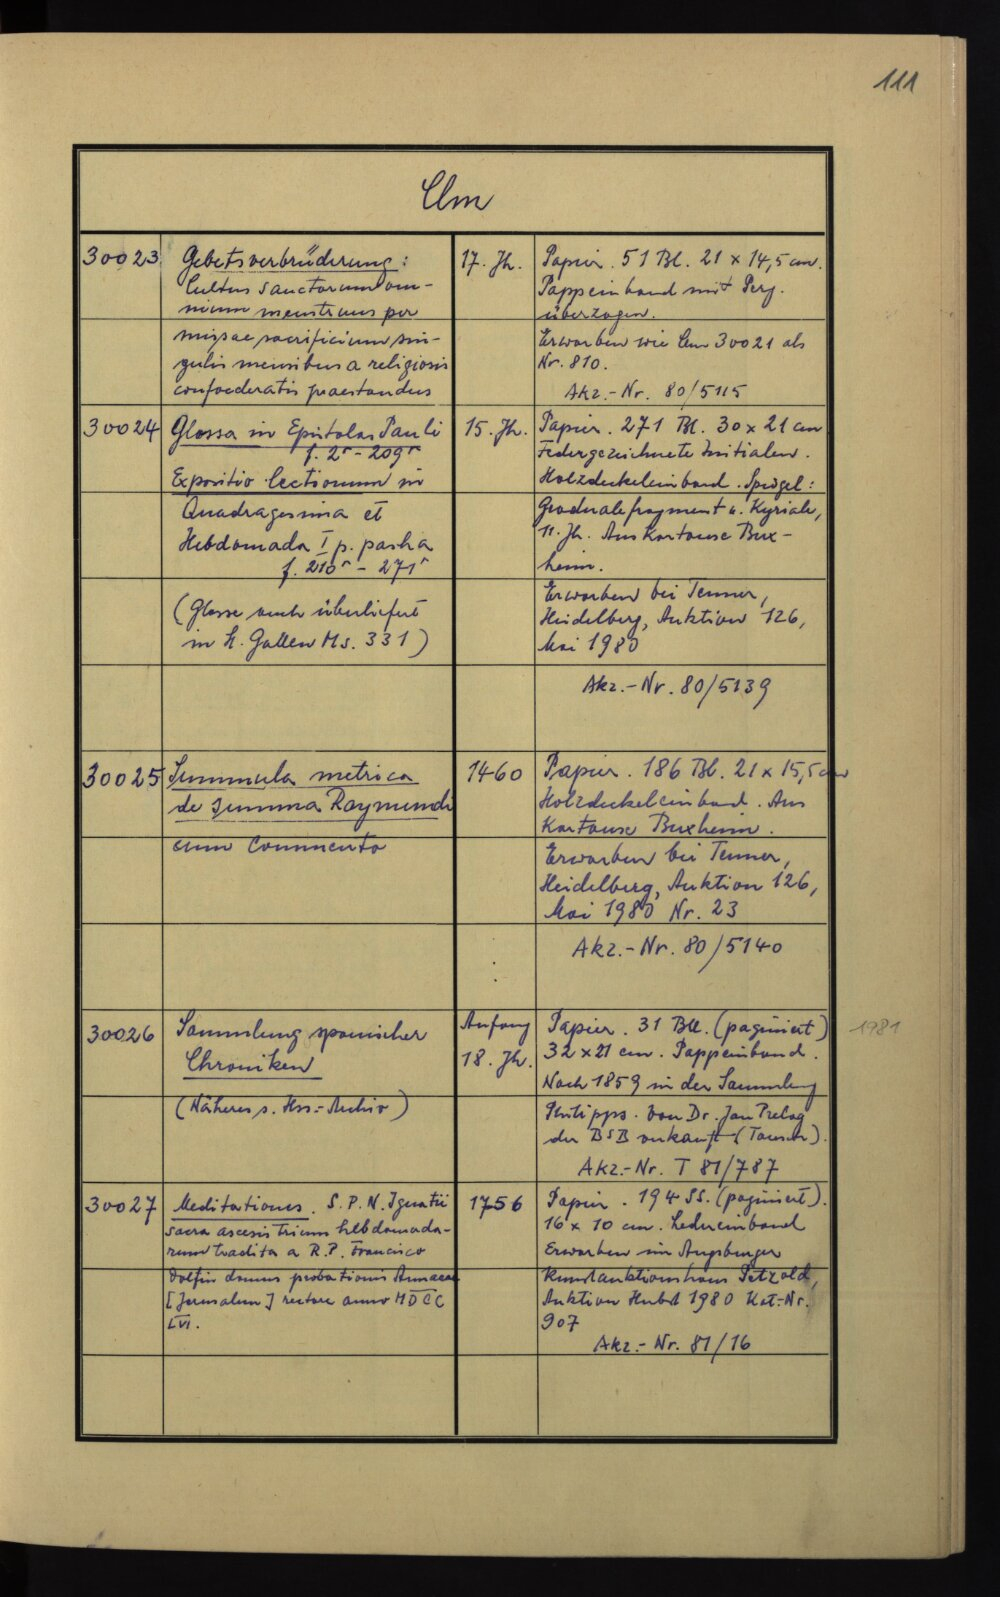 111
Clm
30023
Gebetsverbrüderung:
Cultus sanctorum om-
nium menstruus per
missae sacrificium sin-
gulis mensibus a religiosis
confoederatis praestandus
17. Jh.
Papier. 51 Bl. 21 x 14,5 cm.
Pappeinband mit Perg.
überzogen.
Erworben wie Clm 30021 als
Nr. 810.
Akz.-Nr. 80/5115
30024
Glossa in Epistolas Pauli
f. 2r - 209r
Expositio lectionum in
Quadragesima et
Hebdomada I p. pasha
f. 210r - 271r
(Glosse auch überliefert
in St. Gallen Ms. 331)
15. Jh.
Papier. 271 Bl. 30 x 21 cm
Federgezeichnete Initialen.
Holzdeckeleinband. Spiegel:
Gradualefragment u. Kyriale,
11. Jh. Aus Kartause Bux-
heim.
Erworben bei Tenner,
Heidelberg, Auktion 126,
Mai 1980
Akz.-Nr. 80/5139
30025
Summula metrica
de summa Raymundi
cum commento
1460
Papier. 186 Bl. 21 x 15,5 cm
Holzdeckeleinband. Aus
Kartause Buxheim.
Erworben bei Tenner,
Heidelberg, Auktion 126,
Mai 1980 Nr. 23
Akz.-Nr. 80/5140
30026
Sammlung spanischer
Chroniken
(Näheres s. Hss.-Archiv)
Anfang
18. Jh.
Papier. 31 Bll. (paginiert)
32 x 21 cm. Pappeinband.
Nach 1859 in der Sammlung
Phillipps. Von Dr. Jan Prelog
der BSB verkauft (Tausch).
Akz.-Nr. T 81/787
1981
30027
Meditationes. S. P. N. Ignatii
sacra ascesis trium hebdomada-
rum tradita a R.P. Francisco
Dolfin domus probationis Annaeae
[Jerusalem] rectore anno MDCC
LVI.
1756
Papier. 194 SS. (paginiert).
16 x 10 cm. Ledereinband
Erworben im Augsburger
Kunstauktionshaus Petzold,
Auktion Herbst 1980 Kat.-Nr.
907
Akz.-Nr. 81/16